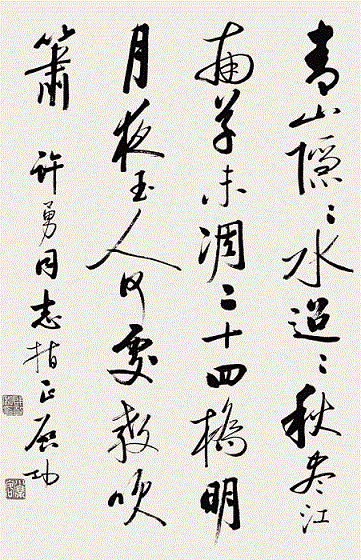 青山隱〻水迢〻秋盡江
南草未凋二十四橋明
月夜玉人何處教吹
簫
許勇同志指正 启功